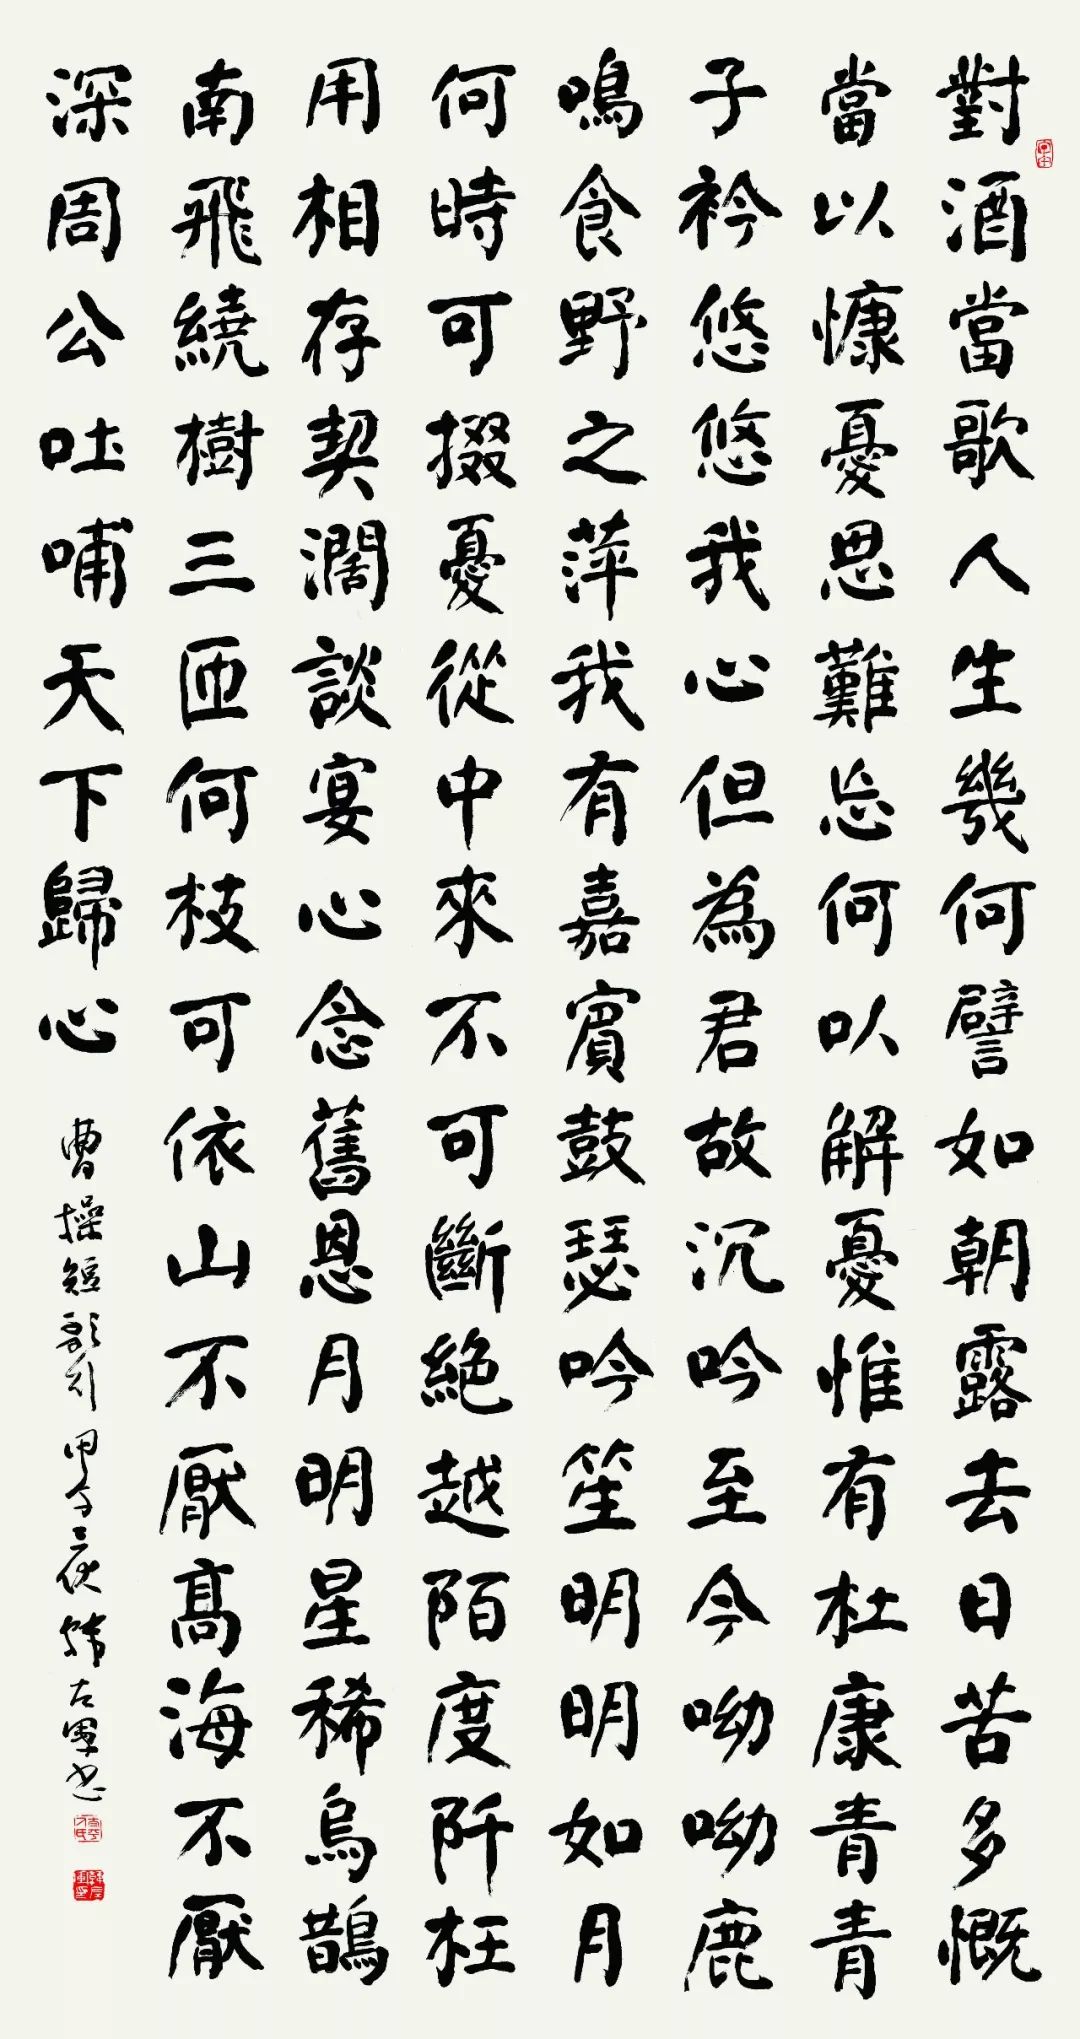 對酒當歌人生幾何譬如朝露去日苦多慨
當以慷憂思難忘何以解憂惟有杜康青青
子衿悠悠我心但為君故沉吟至今呦呦鹿
鳴食野之萍我有嘉賓鼓瑟吟笙明明如月
何時可掇憂從中來不可斷絕越陌度阡枉
用相存契濶談宴心念舊恩月明星稀烏鵲
南飛繞樹三匝何枝可依山不厭高海不厭
深周公吐哺天下歸心
曹操短歌行甲午韓左軍书